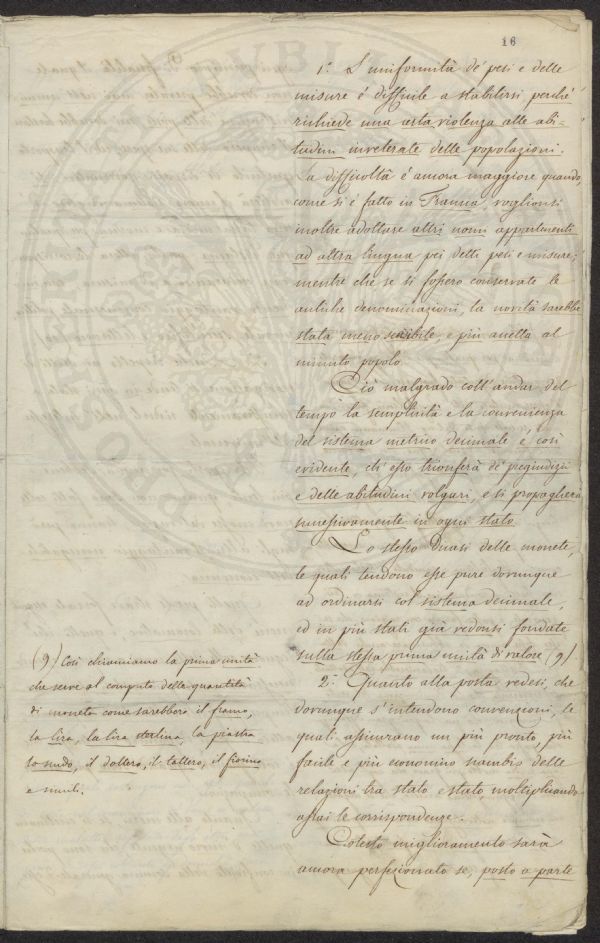 16
1.° L'uniformità de' pesi e delle
misure é difficile a stabilirsi perché
richiede una certa violenza alle abi-
tudini inveterate delle popolazioni.
La difficoltà é ancora maggiore quando,
come si é fatto in Francia, voglionsi
inoltre adottare altri nomi appartenenti
ad altra lingua pei detti pesi e misure;
mentre che se si fossero conservate le
antiche denominazioni, la novità sarebbe
stata meno sensibile, e più accetta al
minuto popolo.
Ciò malgrado coll'andar del
tempo la semplicità e la convenienza
del sistema metrico decimale é così
evidente, ch'esso trionferà de' pregiudizi
e delle abitudini volgari, e si propagherà
successivamente in ogni stato.
Lo stesso dicasi delle monete,
le quali tendono esse pure dovunque
ad ordinarsi col sistema decimale,
ed in più stati già vedonsi fondate
sulla stessa prima unità di valore (9)
2.° Quanto alla posta vedesi, che
dovunque s'intendono convenzioni, le
quali assicurano un più pronto, più
facile e più economico scambio delle
relazioni tra stato e stato, moltiplicando
assai le corrispondenze.
Cotesto miglioramento sarà
ancora perfezionato se, posto a parte
(9) Così chiamiamo la prima unità
che serve al computo delle quantità
di moneta come sarebbero il franco,
la lira, la lira sterlina, la piastra
lo scudo, il dollero, il tallero, il fiorino
e simili.